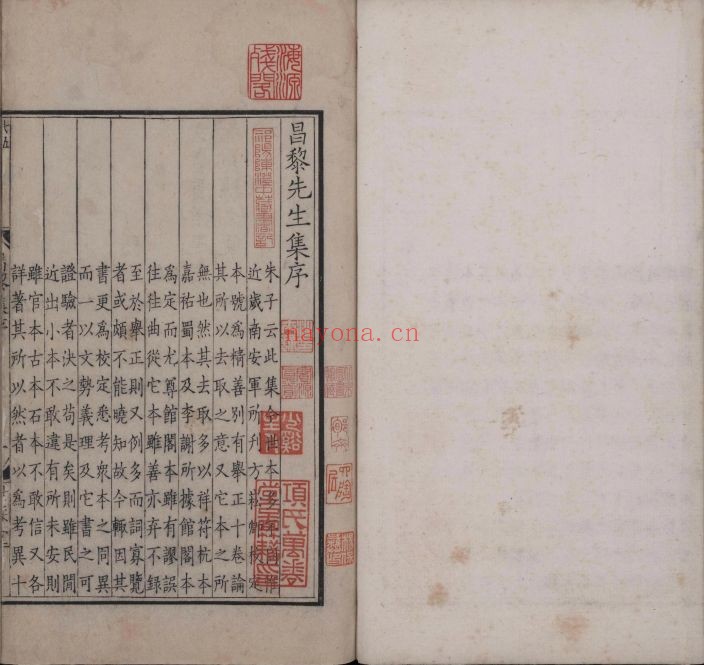 昌黎先生集序
朱子云此集今世本多
近歲南安軍所刊方
本號為精善別有舉正十卷論
其所以去取之意又它本之所
無也然其去取多以祥符杭本
嘉祐蜀本及李謝所據館閣本
為定而尤尊館閣本雖有謬誤
往往曲從它本雖善亦弃不錄
至於舉正則又例多而詞寡覽
者或頗不能曉知故今輒因其
書更為校定悉考衆本之同異
而一以文勢義理及它書之可
證驗者決之苟是矣則雖民間
近出小本不敢違有所未安則
雖官本古本石本不敢信又各
詳著其所以然者以為考異十
海源殘閣
項氏萬卷
nayona.cn